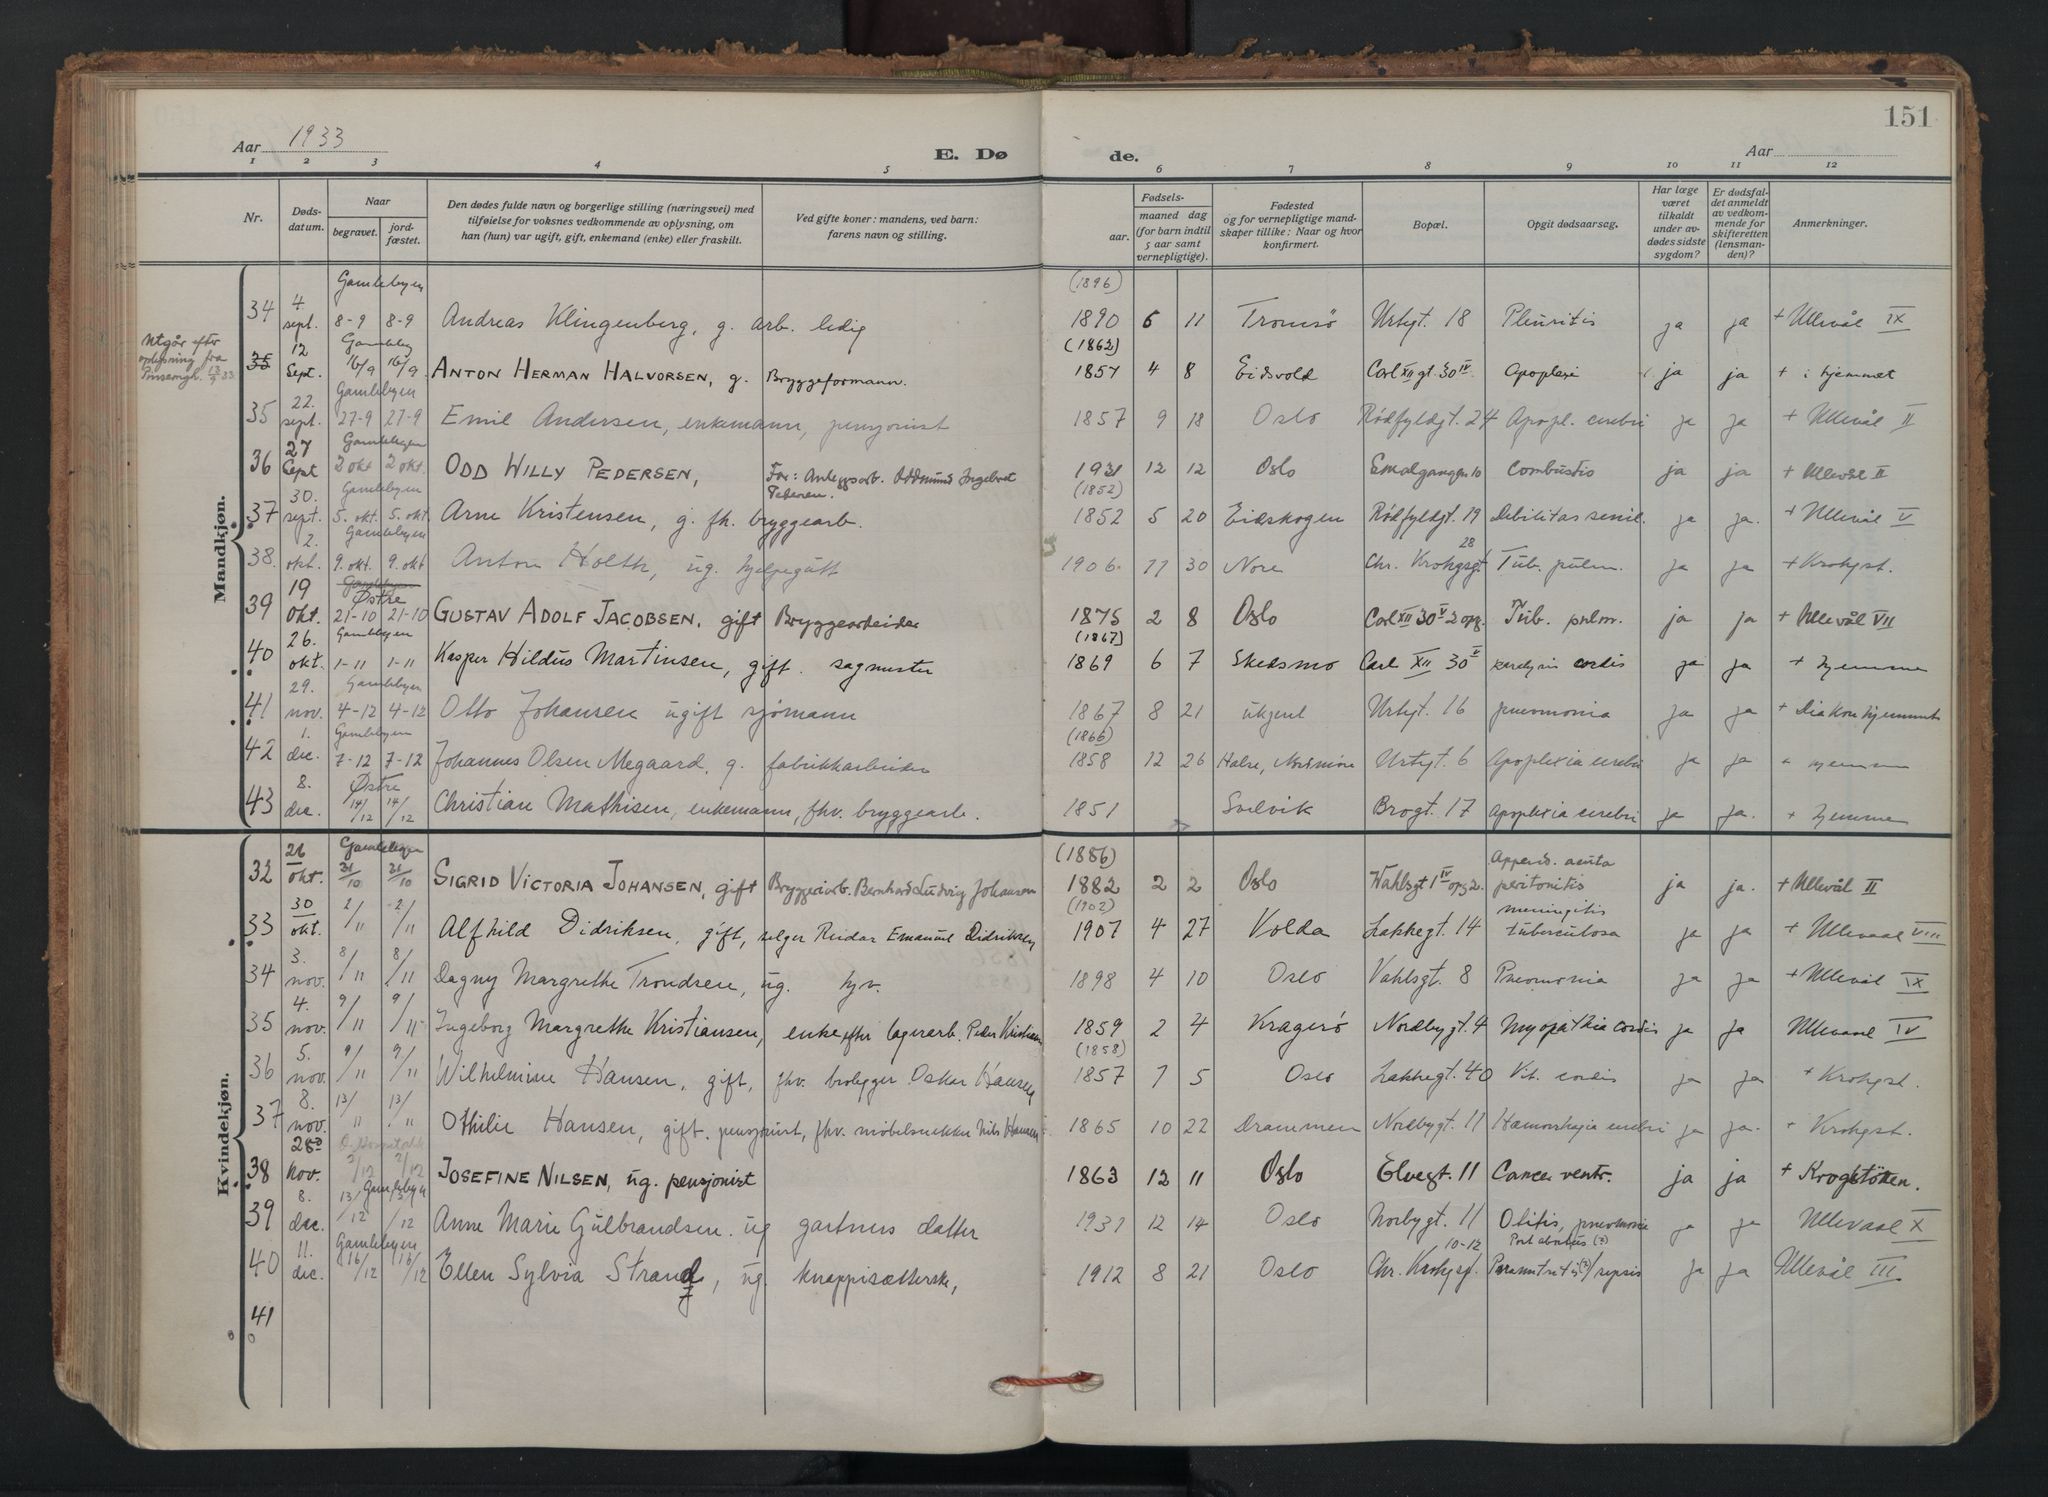 151
Aar 1933
E. Dø
de.
Aar
1 2 3 4 5 6 7 8 9 10 11 12
Nr.
Døds-
datum.
Naar
begravet.
jord-
fæstet.
Den dødes fulde navn og borgerlige stilling (næringsvei) med
tilføielse for voksnes vedkommende av oplysning, om
han (hun) var ugift, gift, enkemand (enke) eller fraskilt.
Ved gifte koner: mandens, ved barn:
farens navn og stilling.
Fødsels-
aar.
maaned dag
(for barn indtil
5 aar samt
vernepligtige).
Fødested
og for vernepligtige mand-
skaper tillike: Naar og hvor
konfirmert.
Bopæl.
Opgit dødsaarsag.
Har læge
været
tilkaldt
under av-
dødes sidste
sygdom?
Er dødsfal-
det anmeldt
av vedkom-
mende for
skifteretten
(lensman-
den)?
Anmerkninger.
Mandkjøn.
Gamlebyen (1896)
34 4 sept. 8-9 8-9 Andreas Klingenberg, g. arb. ledig 1890 6 11 Tromsø Urtgt. 18 Pleuritis ja ja + Ullevål IX
Utgår efter
oplysning fra
Gamleby (1862)
35 12 Sept. 16/9 16/9 ANTON HERMAN HALVORSEN, g. Bryggeformann. 1857 4 8 Eidsvold Carl XII gt. 30 IV Apoplexi ja ja + i hjemmet
Gamlebyen
35 22. sept. 27-9 27-9 Emil Andersen, enkemann, pensjonist 1857 9 18 Oslo Rødfyldgt. 24 Apopl. cerebri ja ja + Ullevål II
Gamlebyen
36 27 Sept 2 okt. 2 okt. ODD WILLY PEDERSEN, Far: Anleggsarb. Oddmund Ingebret Pedersen. 1931 12 12 Oslo Enalgangen 10 Combustio ja ja + Ullevål II
Gamlebyen (1852)
37 30. sept. 5. okt. 5. okt. Arne Kristensen, g. fh. bryggearb. 1852 5 20 Eidskogen Rødfyldgt. 19 Debilitas senil. ja ja. + Ullevål V
Gamlebyen
38. 2. okt. 9. okt. 9. okt Anton Holth, ug. hjelpegutt 1906 11 30 Nore Chr. Krohgsgt. 28 Tub. pulm. ja ja + Krohgst.
Gamlebyen Østre
39 19 Okt. 21-10 21-10 GUSTAV ADOLF JACOBSEN, gift Bryggearbeider 1875 2 8 Oslo Carl XII 30 V 2 opg. Tub. pulm. ja ja + Ullevål VII
Gamlebyen (1867)
40 26. okt. 1-11 1-11 Kasper Hildus Martinsen, gift. sagmester 1869 6 7 Skedsmo Carl XII 30 V paralysis cordis ja ja + hjemme
Gamlebyen
41 29. nov. 4-12 4-12 Otto Johansen ugift sjømann 1867 8 21 ukjent Urtgt. 16 pneumonia ja ja + Diakonhjemmet
Gamlebyen (1866)
42 1. dec. 7-12 7-12 Johannes Olsen Megaard, g. fabrikkarbeider 1858 12 26 Halse, Nordmøre Urtgt. 6 Apoplexia cerebri ja ja + hjemme
Østre
43 8. dec. 14/12 14/12 Christian Mathisen, enkemann, fhv. bryggearb. 1851 Svelvik Brogt. 17 Apoplexia cerebri ja ja. + hjemme
Kvindekjøn.
Gamlebyen (1886)
32 26 okt. 31/10 31/10 SIGRID VICTORIA JOHANSEN, gift Bryggeriarb. Bernhard Ludvig Johansen 1882 2 2 Oslo Wahlsgt 1 IV opg 2. Append. acuta peritonitis ja ja. + Ullevål II
(1902)
33 30 okt. 2/11 2/11 Alfhild Didriksen, gift, selger Reidar Emanuel Didriksen 1907 4 27 Volda Lakkegt. 14 meningitis tuberculosa ja ja + Ullevaal VIII
34 3. nov. 8/11 8/11 Dagny Margrethe Trondsen, ug. hjv. 1898 4 10 Oslo Vahlsgt. 8 Pneumonia ja ja + Ullevål IX
35 4. nov. 9/11 9/11 Ingeborg Margrethe Kristiansen, enke efter lagerarb. Peder Kristiansen 1859 2 4 Kragerø Nordbygt. 4 Myopathia cordis ja ja Ullevaal IV
(1858)
36 5. nov. 9/11 9/11 Wilhelmine Hansen, gift, fhv. brolegger Oskar Hansen 1857 7 5 Oslo Lakkegt. 40 Vit. cordis ja ja + Krohgst.
37 8. nov. 13/11 13/11 Othilie Hansen, gift. pensjonist, fhv. møbelsnekker Nils Hansen 1865 10 22 Drammen Nordbygt. 11 Hæmorrhagia cerebri ja ja. + Krohgst.
38 28 Nov. 2/12 2/12 JOSEFINE NILSEN, ug. pensjonist 1863 12 11 Oslo Elvegt. 11 Cancer ventr. ja ja + Krogstøtten.
Gamlebyen
39 8. dec. 13/12 13/12 Anne Marie Gulbrandsen ug gartners datter 1931 12 14 Oslo Norbygt. 11 Otitis, pneumonia ja ja Ullevaal X
Gamlebyen
40 11. dec. 16/12 16/12 Ellen Sylvia Strand, ug. knappisetterske, 1912 8 21 Oslo Chr. Krohgsgt. 10-12 Post abortus (?) Parametritis (?) / sepsis ja ja Ullevål III
41